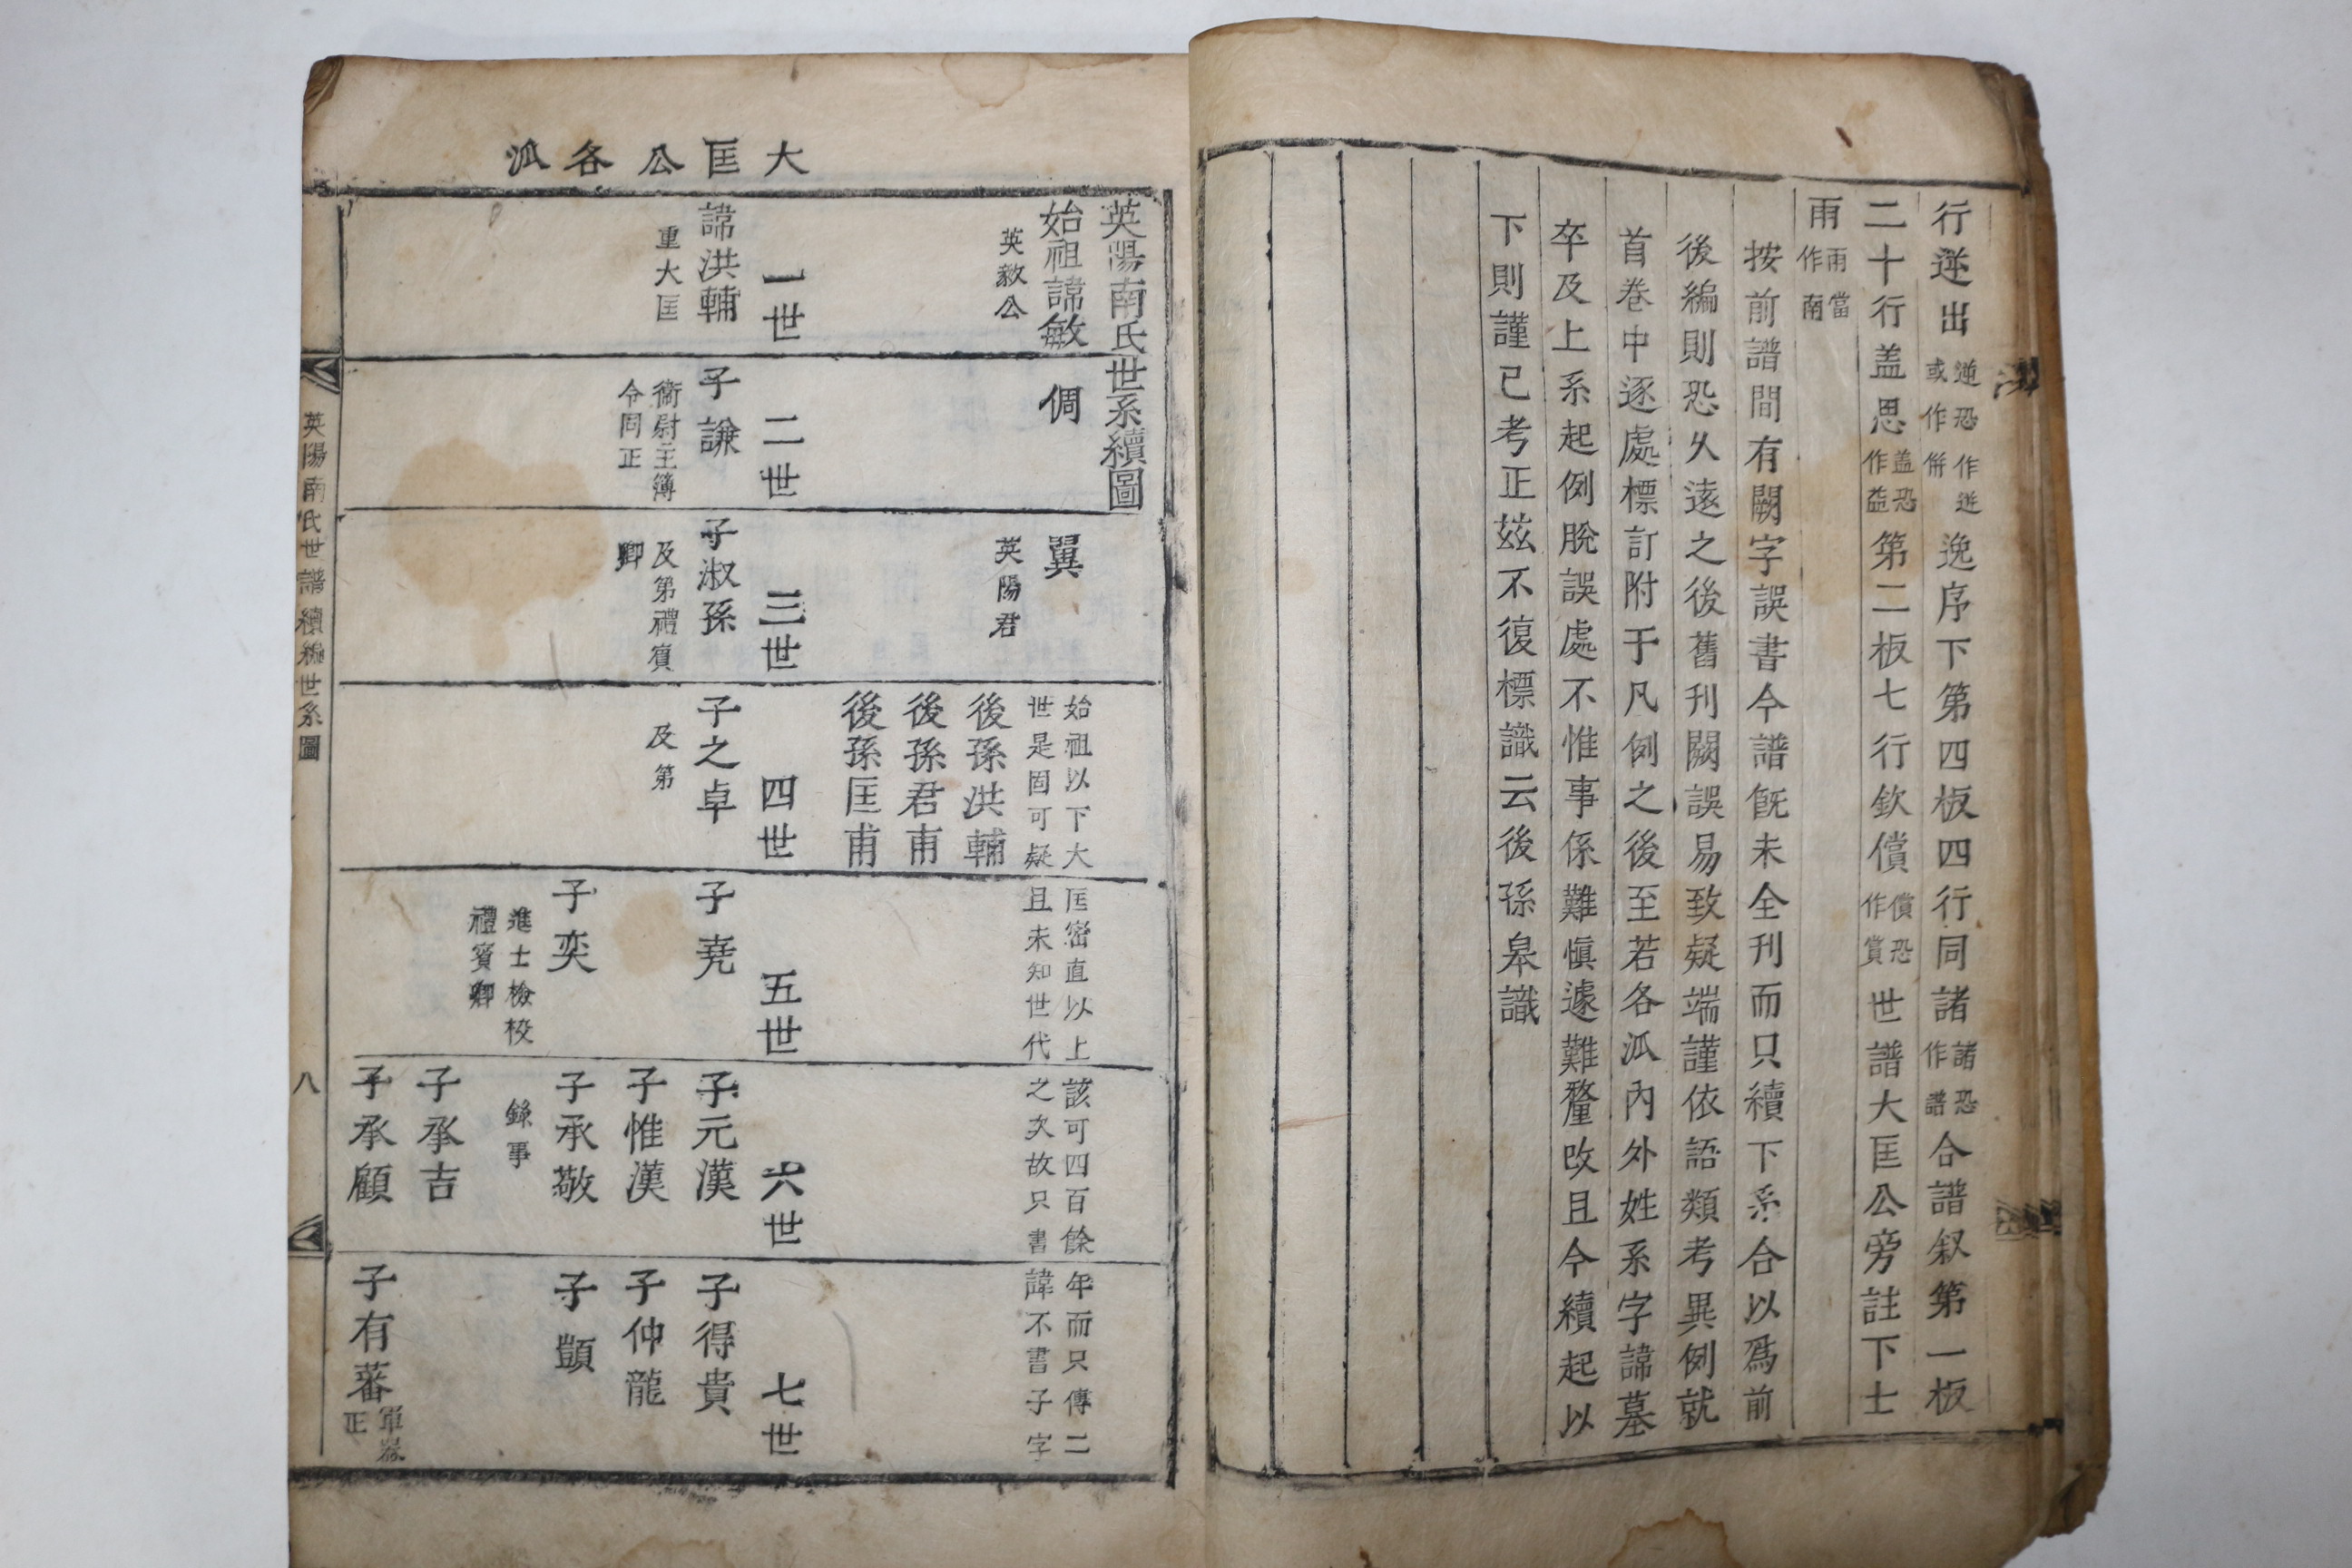 行逆出逆恐作逆或作併逸序下第四板四行同諸諸恐作譜合譜叙第一板
二十行盖思盖恐作益第二板七行欽償償恐作賞世譜大匡公旁註下士
雨雨當作南
按前譜間有闕字誤書今譜旣未全刊而只續下系合以爲前
後編則恐久遠之後舊刊闕誤易致疑端謹依語類考異例就
首卷中逐處標訂附于凡例之後至若各派內外姓系字諱墓
卒及上系起例脫誤處不惟事係難愼遽難釐改且今續起以
下則謹已考正玆不復標識云後孫皐識
大匡公各派
英陽南氏世系續圖
始祖諱敏
英毅公
倜
翼
英陽君
始祖以下大匡密直以上該可四百餘年而只傳二
世是固可疑且未知世代之次故只書諱不書子字
後孫洪輔
後孫君甫
後孫匡甫
一世
二世
三世
四世
五世
六世
七世
諱洪輔
重大匡
子謙
衞尉主簿
令同正
子淑孫
及第禮賓
卿
子之卓
及第
子堯
子元漢
子得貴
子惟漢
子仲龍
子奕
進士檢校
禮賓卿
子承敬
錄事
子顗
子承吉
子承顧
子有蕃軍器正
英陽南氏世譜續編世系圖
八